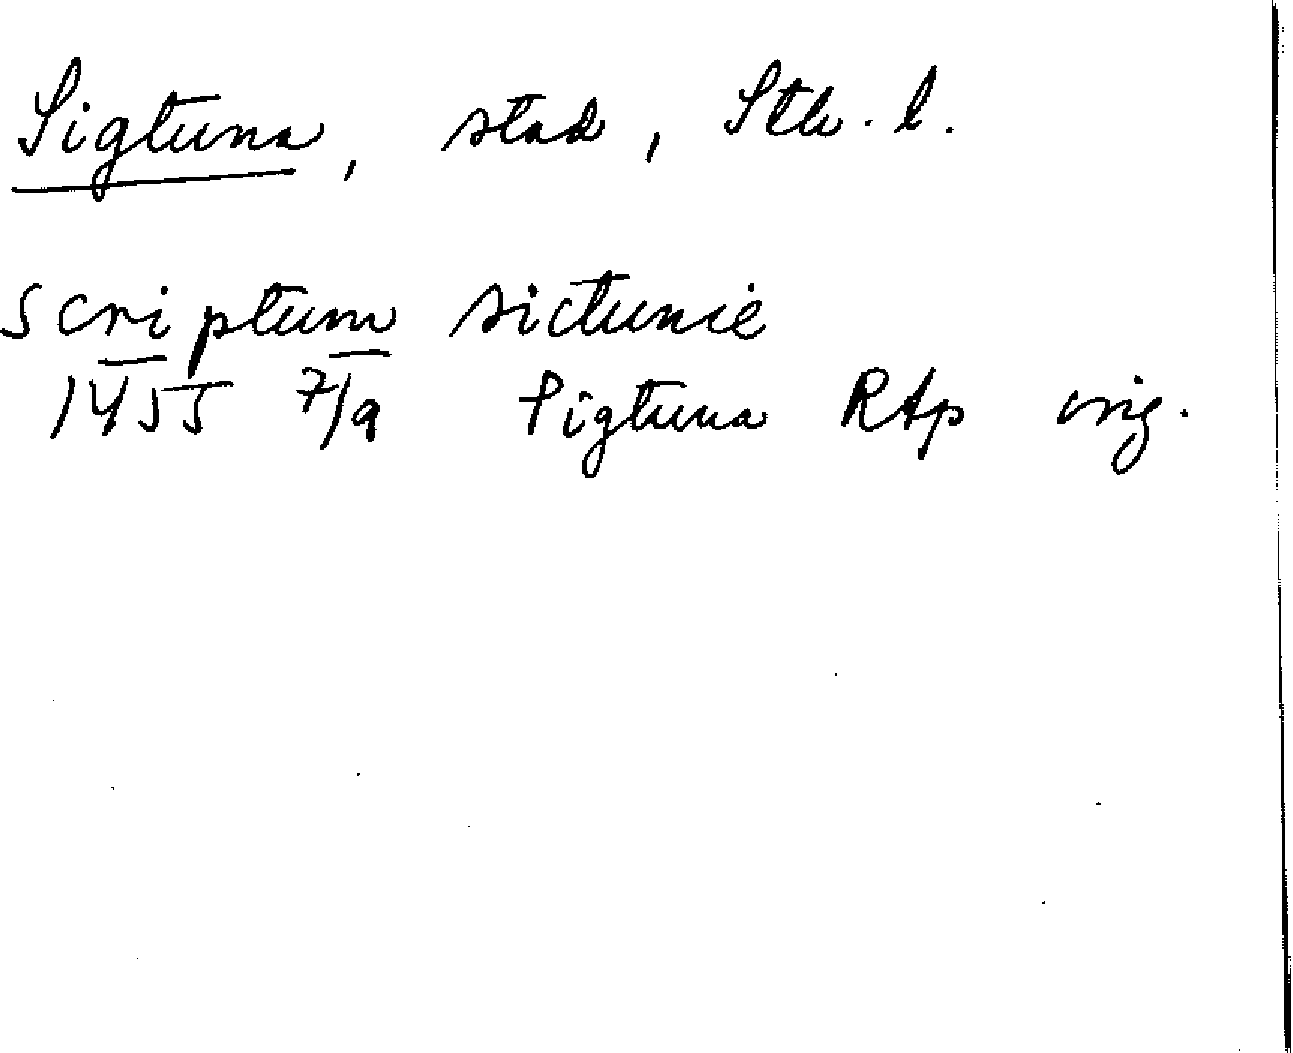 Sigtuna, stad, Sth. l.
scriptum sictunie
1455 7/9 Sigtuna RAp orig.